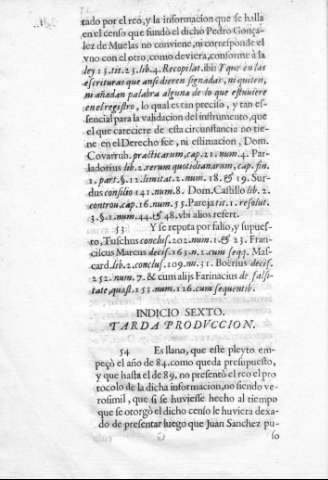 tado por el reo, y la informacion que se halla
en el censo que fundò el dicho Pedro Gonça-
lez de Muelas no conviene, ni corresponde el
vno con el otro, como deviera, conforme à la
ley 13. tit. 25. lib. 4. Recopilat. ibi: Y que en las
escrituras que ansi dieren signadas, ni quiten,
ni añadan palabra alguna de lo que estuuiere
en el registro, lo qual es tan preciso, y tan es-
sencial para la validacion del instrumento, que
el que careciere de esta circunstancia no tie-
ne en el Derecho fee, ni estimacion, Dom.
Covarrub. practicarum, cap. 21. num. 4. Par-
ladorius lib. 2. rerum quotidianarum, cap. fin.
1. part. §. 12. limitat. 2. num. 18. & 19. Sur-
dus consilio 141. num. 8. Dom. Castillo lib. 2.
controu. cap. 16. num. 35. Pareja tit. 1. resolut.
3. §. 1. num. 44. & 48. vbi alios refert.
53 Y se reputa por falso, y supues-
to, Tuschus conclus. 202. num. 1. & 23. Fran-
ciscus Marcus decis. 163. n. 2. cum seqq. Mas-
card. lib. 2. conclus. 109. nu. 31. Boërius decis.
252. num. 7. & cum alijs Farinacius de falsi-
tate, quæst. 153. num. 126. cum sequentib.
INDICIO SEXTO.
TARDA PRODUCCION.
54 Es llano, que este pleyto em-
peçò el año de 84. como queda presupuesto,
y que hasta el de 89. no presentò el reo el pro
tocolo de la dicha informacion, no siendo ve-
rosimil, que si se huviesse hecho al tiempo
que se otorgò el dicho censo le huviera dexa-
do de presentar luego que Juan Sanchez pu-
so